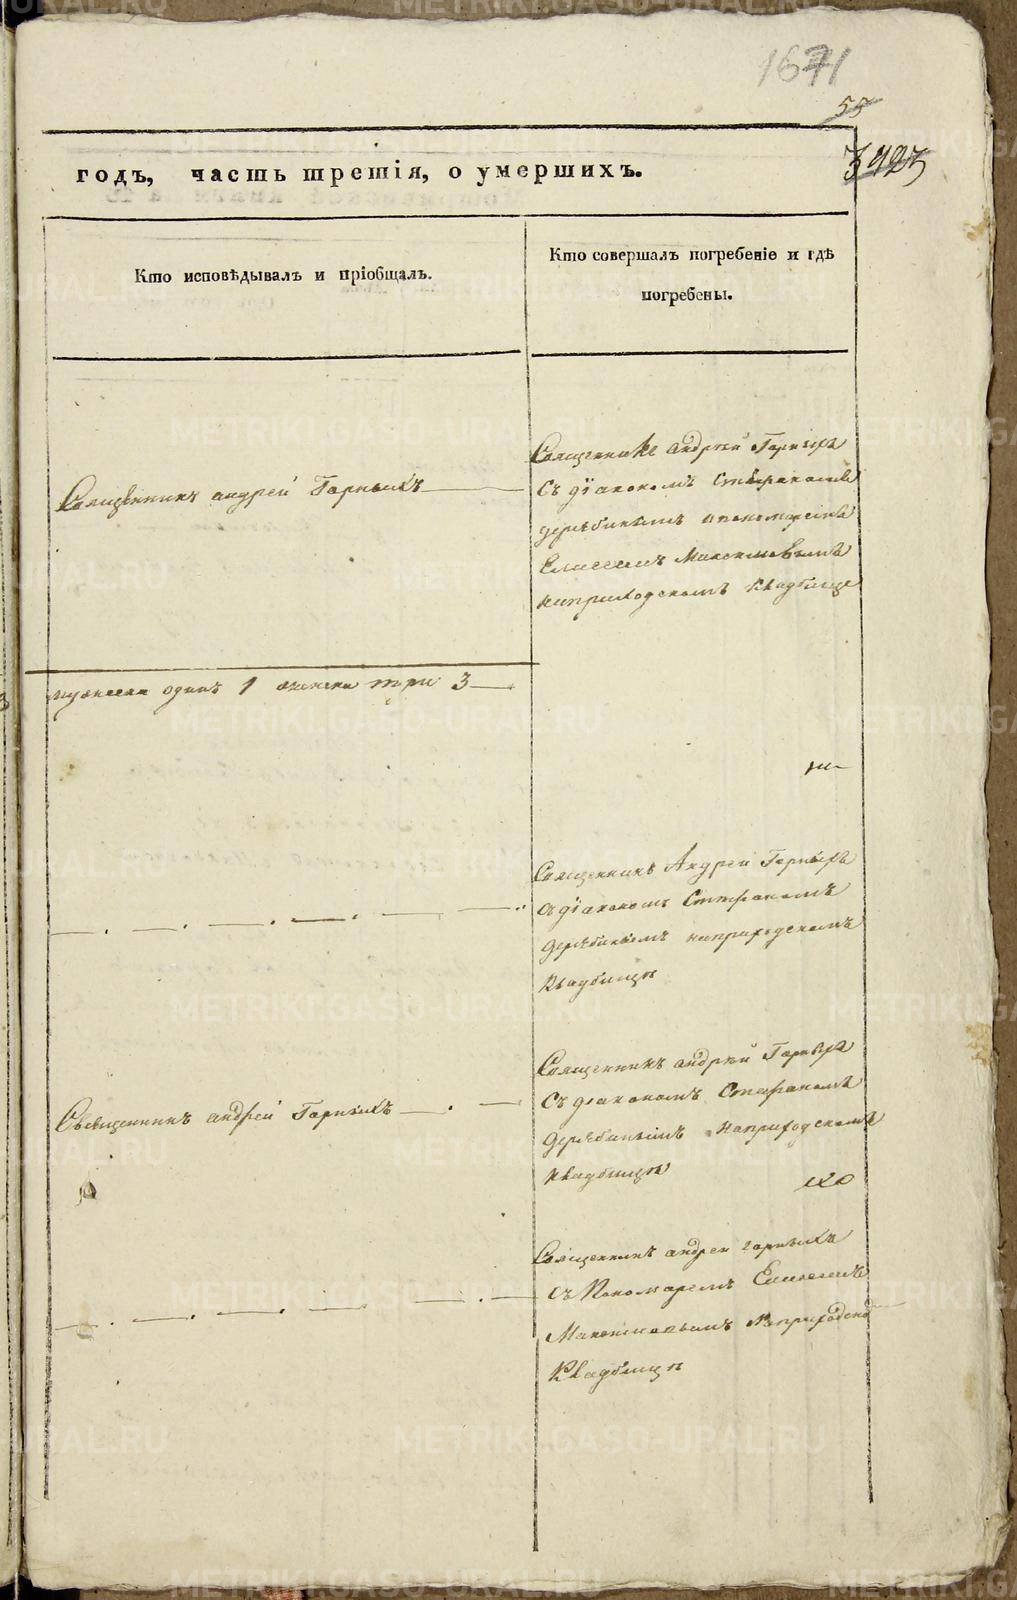 1671
55
годъ, часть третія, о умершихъ.
Кто исповѣдывалъ и пріобщалъ.
Кто совершалъ погребеніе и гдѣ
погребены.
Священникъ андрей Горныхъ
Священникъ андрей Горныхъ
съ діакономъ Стефаномъ
дерябинымъ
Елисеемъ Максимовымъ
наприходскомъ кладбище
мужеска одинъ 1 женска три 3
Священникъ Андрей Горныхъ
съ діакономъ Стефаномъ
дерябинымъ наприходскомъ
кладбищѣ
Священникъ андрей Горныхъ
съ діакономъ Стефаномъ
Священникъ андрей Горныхъ
дерябинымъ наприходскомъ
кладбищѣ
Священникъ андрей горныхъ
съ Пономаремъ Елисеемъ
Максимовымъ
Кладбищѣ
METRIKI.GASO-URAL.RU